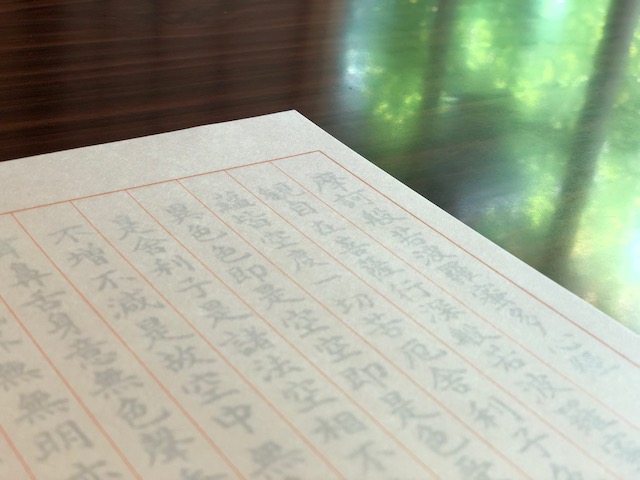 摩訶般若波羅蜜多心經
觀自在菩薩行深般若波羅蜜
蘊皆空度一切苦厄舍利子色
異色色即是空空即是色受
是舍利子是諸法空相不
不增不減是故空中無
耳鼻舌身意無色聲
無無明亦